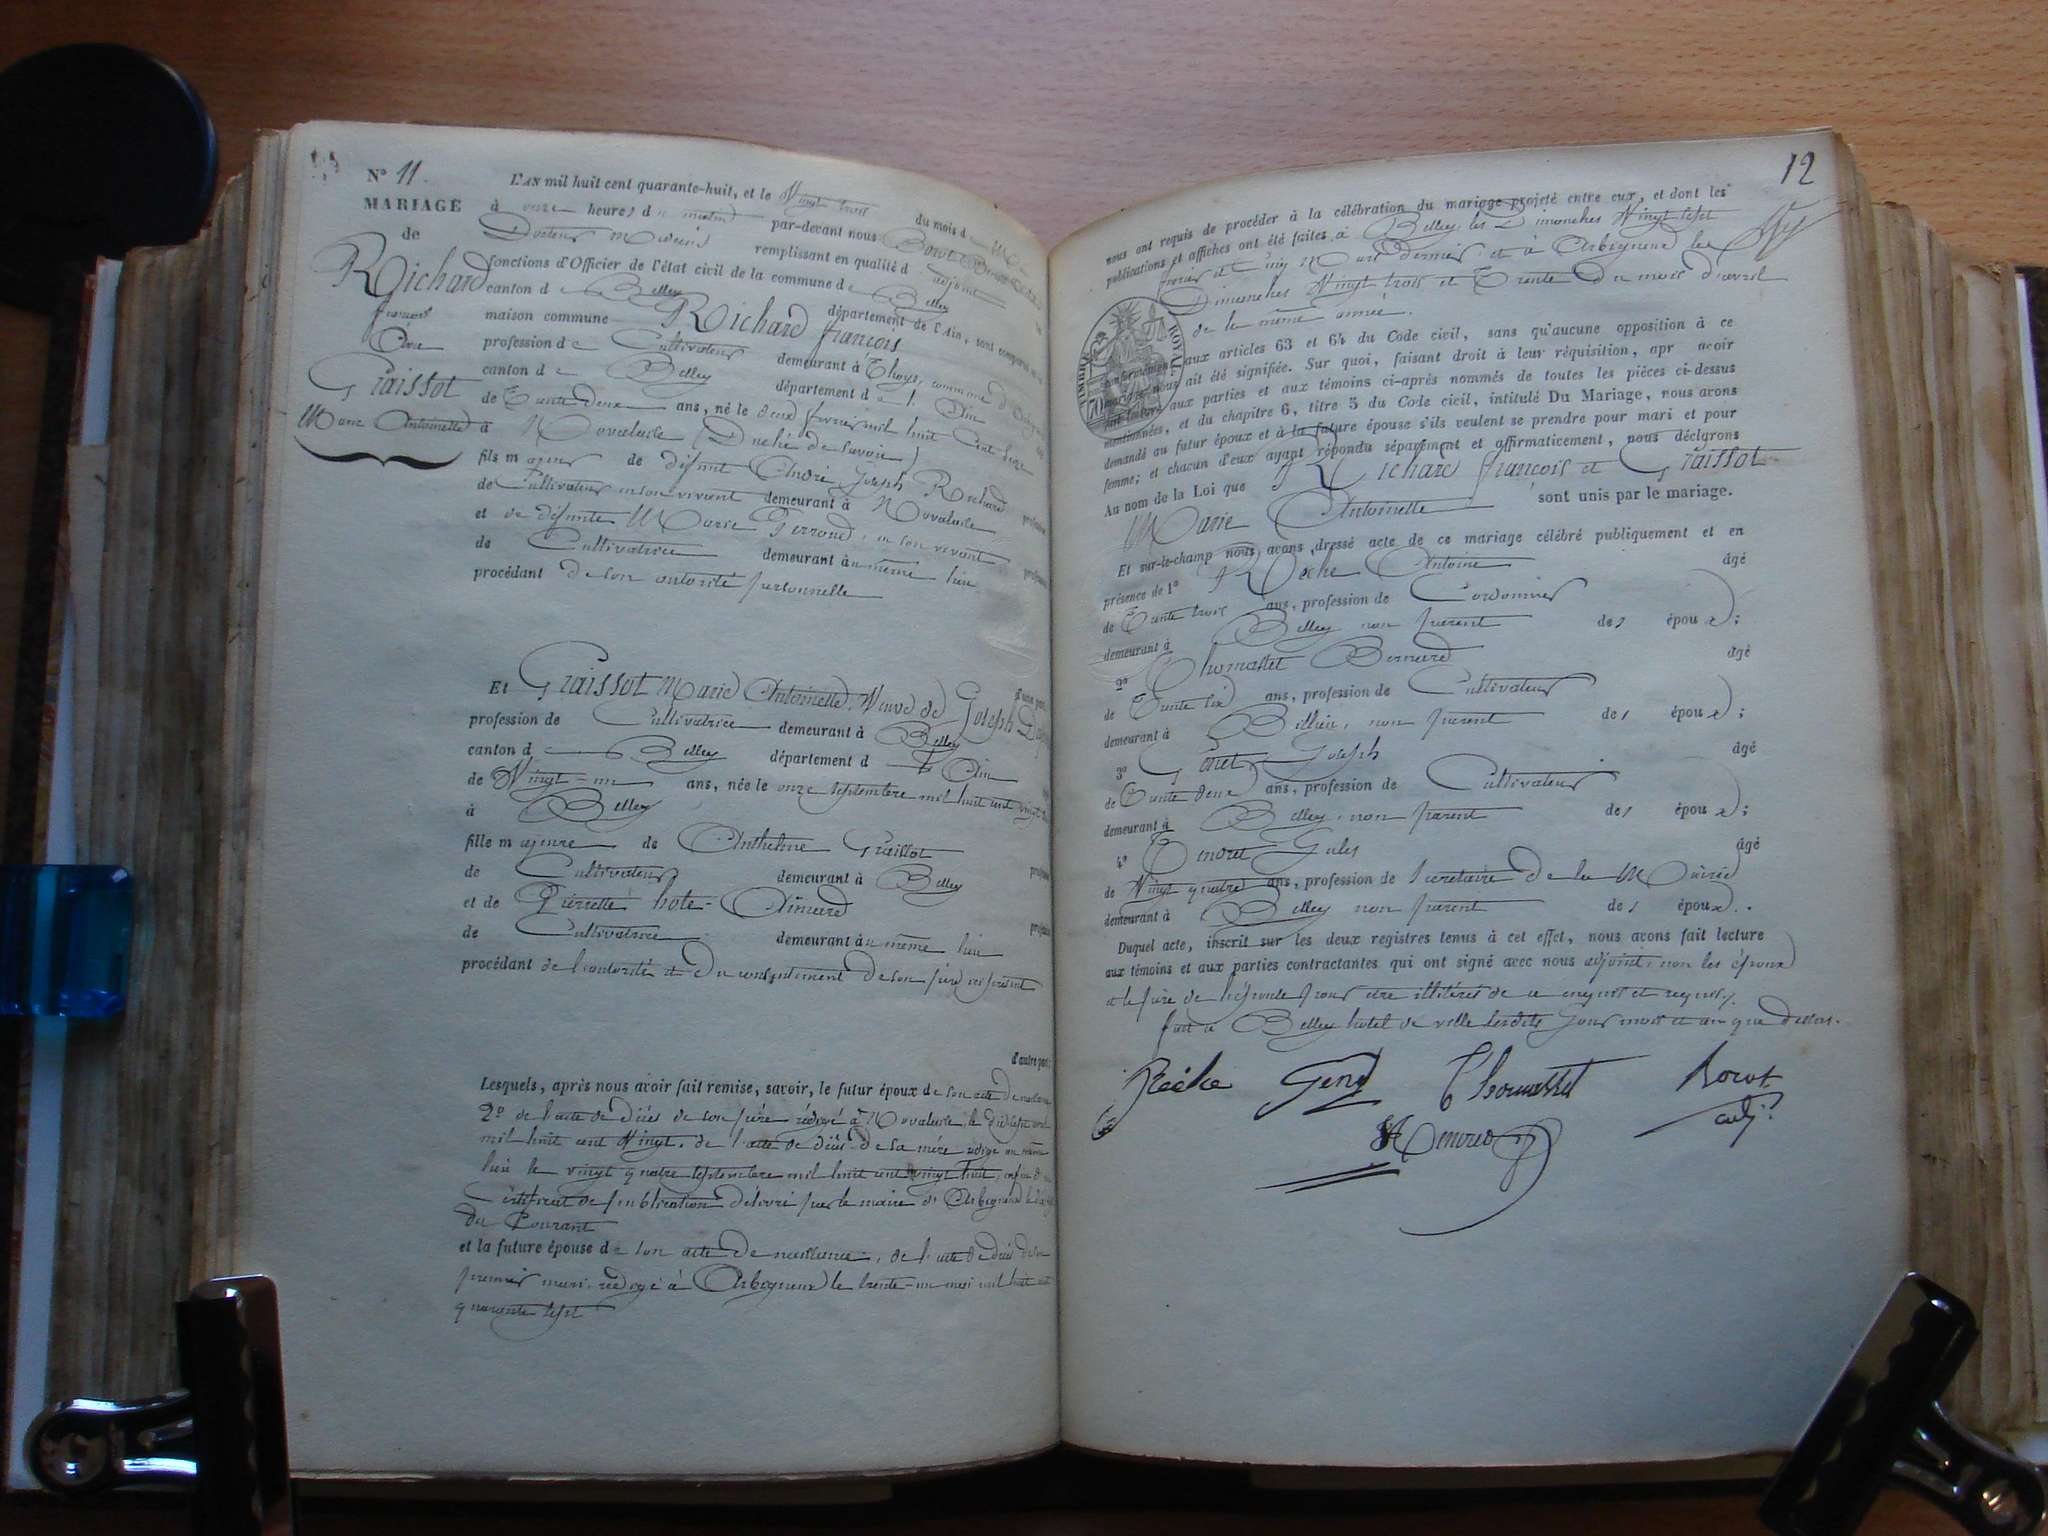 N° 11
MARIAGE
de
Richard
françois
Avec
Graissot
Marie Antoinette
L'AN mil huit cent quarante-huit, et le Vingt trois du mois d
à onze heures du matin par-devant nous Borot
Docteur Médecin remplissant en qualité d'adjoint
fonctions d'Officier de l'état civil de la commune de Belley
canton de Belley département de l'Ain, sont comparus
maison commune Richard françois
profession de Cultivateur demeurant à Thoys, commune d'
canton de Belley département de l'Ain
de Trente deux ans, né le deux février mil huit cent seize
à Novalaise (Duché de Savoie)
fils majeur de défunt André Joseph Richard
de Cultivateur en son vivant demeurant à Novalaise
et de défunte Marie Perroud, en son vivant
de Cultivatrice demeurant au même lieu
procédant de son autorité personnelle
d'une part,
Et Graissot Marie Antoinette, Veuve de Joseph
profession de Cultivatrice demeurant à Belley
canton de Belley département de l'Ain
de Vingt-un ans, née le onze septembre mil huit cent vingt
à Belley
fille majeure de Anthelme Graissot
de Cultivateur demeurant à Belley
et de Pierrette hote-Aimard
de Cultivatrice demeurant au même lieu
procédant de l'autorité et du consentement de son père ici présent
d'autre part:
Lesquels, après nous avoir fait remise, savoir, le futur époux de son acte de
2° de l'acte de décès de son père rédigé à Novalaise le dix sept
mil huit cent Vingt, de l'acte de décès de sa mère rédigé au même
lieu le vingt quatre septembre mil huit cent vingt huit, enfin d'un
Certificat de publication délivré par le maire d'Arbignieu le
du Courant
et la future épouse de son acte de naissance, de l'acte de décès de son
premier mari, rédigé à Arbignieu le trente-un mai mil huit cent
quarante sept
12
nous ont requis de procéder à la célébration du mariage projeté entre eux, et dont les
publications et affiches ont été faites à Belley les Dimanches Vingt sept
février et cinq Mars derniers et à Arbignieu les
Dimanches Vingt trois et Trente du mois d'avril
de la même année.
TIMBRE ROYAL
70
conformément aux articles 63 et 64 du Code civil, sans qu'aucune opposition à ce
mariage nous ait été signifiée. Sur quoi, faisant droit à leur réquisition, apr avoir
fait lecture aux parties et aux témoins ci-après nommés de toutes les pièces ci-dessus
mentionnées, et du chapitre 6, titre 5 du Code civil, intitulé Du Mariage, nous avons
demandé au futur époux et à la future épouse s'ils veulent se prendre pour mari et pour
femme; et chacun d'eux ayant répondu séparément et affirmativement, nous déclarons
Au nom de la Loi que Richard françois et Graissot
Marie Antoinette sont unis par le mariage.
Et sur-le-champ nous avons dressé acte de ce mariage célébré publiquement et en
présence de 1° Roche Antoine âgé
de Trente trois ans, profession de Cordonnier
demeurant à Belley non parent des époux;
2° Thomasset Bernard âgé
de Trente six ans, profession de Cultivateur
demeurant à Billieu, non parent des époux;
3° Genet Joseph âgé
de Trente deux ans, profession de Cultivateur
demeurant à Belley, non parent des époux;
4° Tendret Jules âgé
de Vingt quatre ans, profession de Secrétaire de la Mairie
demeurant à Belley non parent des époux.
Duquel acte, inscrit sur les deux registres tenus à cet effet, nous avons fait lecture
aux témoins et aux parties contractantes qui ont signé avec nous adjoint, non les époux
et le père de l'épouse pour être illitérés de ce enquis et requis.
fait à Belley hotel de ville lesdits Jour mois et an que dessus.
Roche Genet Thomasset Borot
adj.